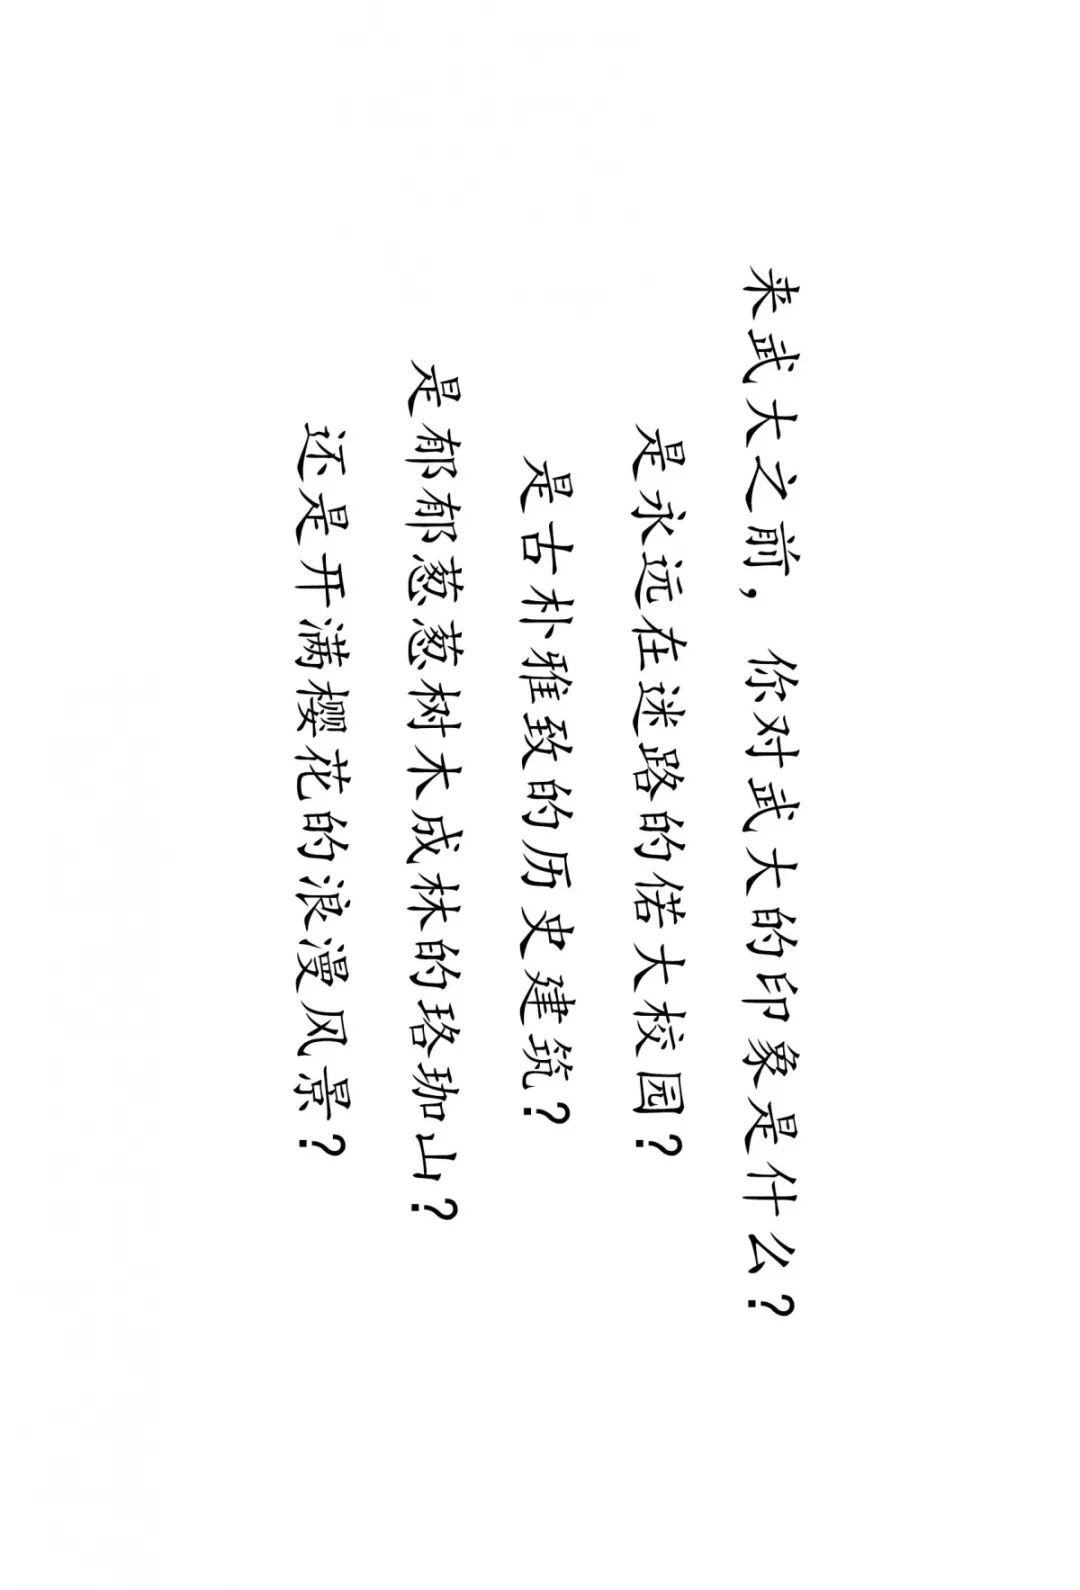 来武大之前，你对武大的印象是什么?
是永远在迷路的偌大校园?
是古朴雅致的历史建筑?
是郁郁葱葱树木成林的珞珈山?
还是开满樱花的浪漫风景?